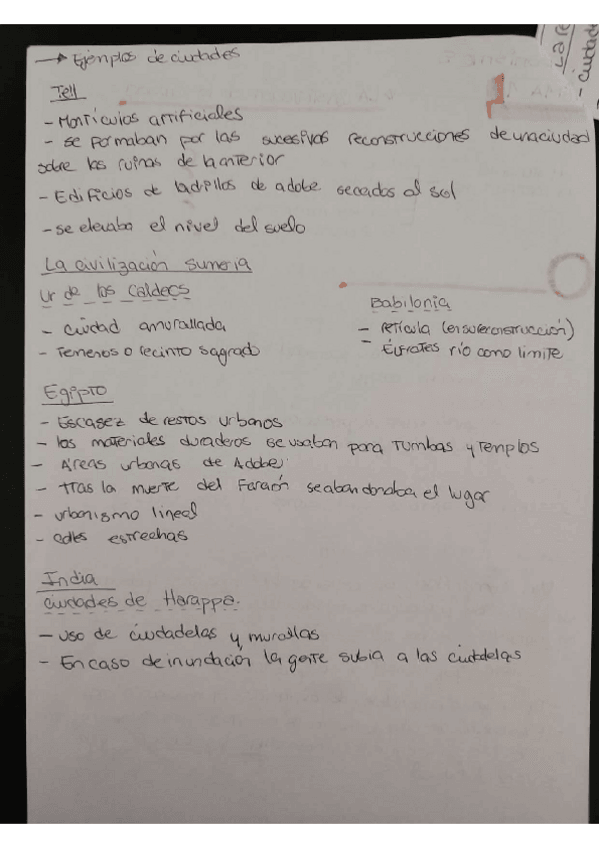 → Ejemplos de ciudades
Tell
- Montículos artificiales
- se formaban por las sucesivas reconstrucciones de una ciudad
sobre las ruinas de la anterior
- Edificios de ladrillos de adobe secados al sol
- se elevaba el nivel del suelo
La civilización sumeria
Ur de los Caldeos
- ciudad amurallada
- Temenos o recinto sagrado
Babilonia
- retícula (en su reconstrucción)
- Éufrates río como limite
Egipto
- Escasez de restos urbanos
- los materiales duraderos se usaban para tumbas y templos
- Áreas urbanas de Adobe
- tras la muerte del Faraón se abandonaba el lugar
- urbanismo lineal
- calles estrechas
India
ciudades de Harappe.
- uso de ciudadelas y murallas
- En caso de inundación la gente subia a las ciudadelas
- ciudad